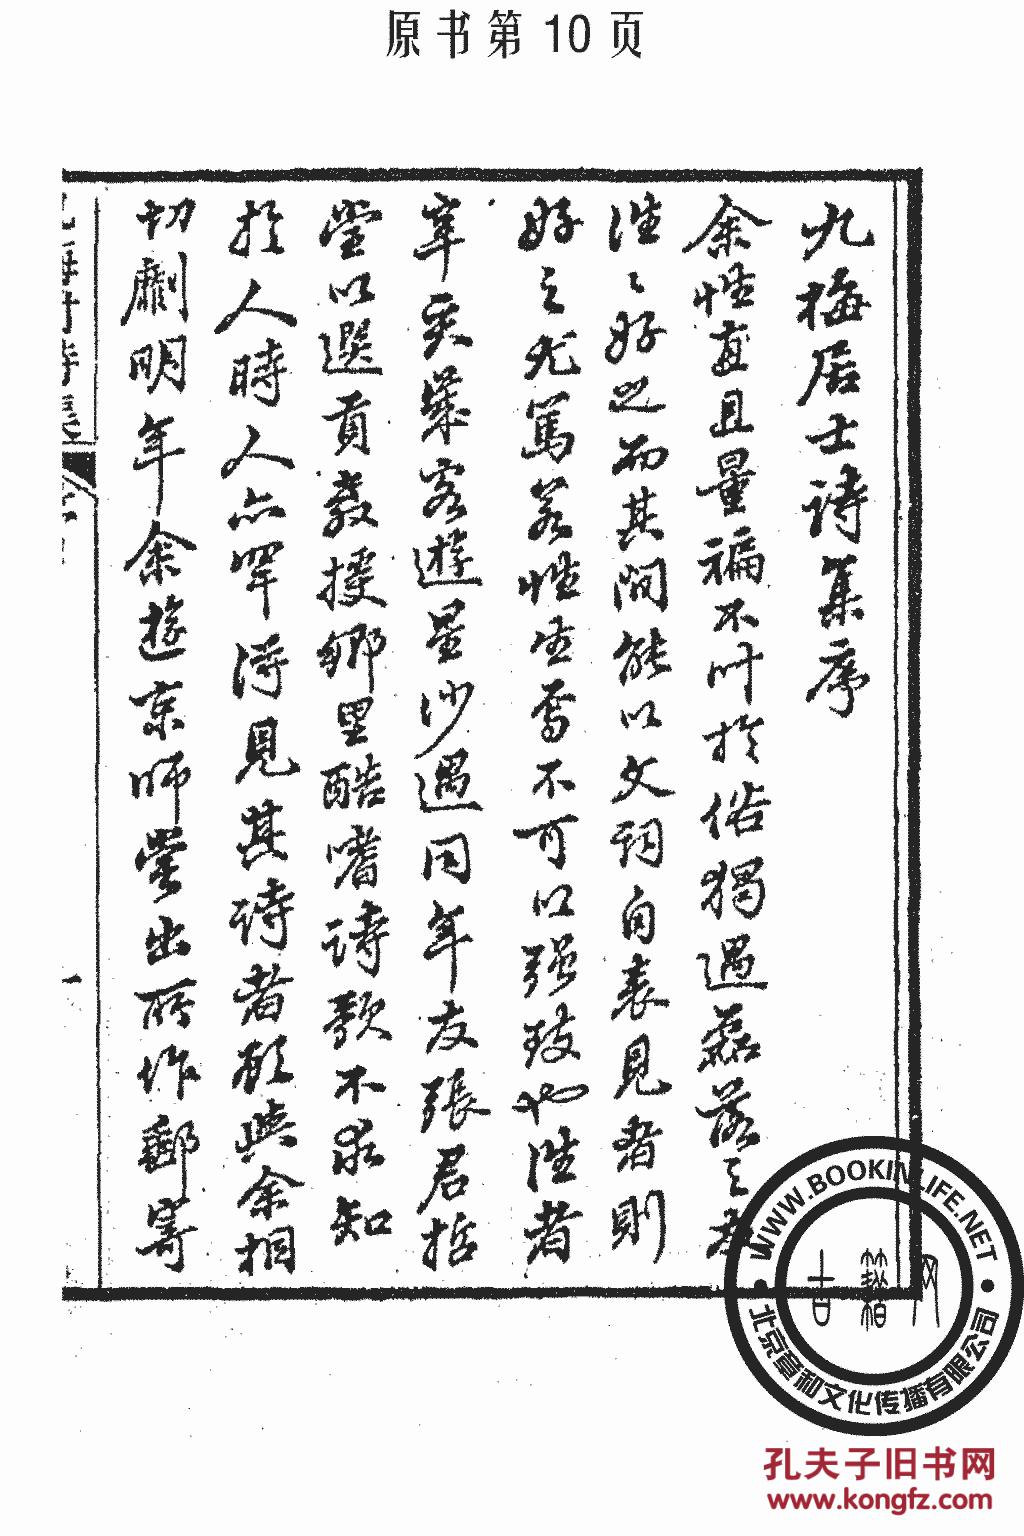 原书第10页
九梅居士詩集序
余性直且量褊不叶於俗獨遇磊落之者
往〻好之而其間能以文詞自表見者則
好之尤篤若性生焉不可以強致也往者
辛亥歲客遊星沙遇同年友張君哲
堂以選貢教授鄉里酷嗜詩歌不求知
於人時人亦罕得見其詩者顧與余相
切劘明年余遊京師堂出所作郵寄
一
WWW.BOOKINLIFE.NET
古籍网
北京章和文化传播有限公司
孔夫子旧书网
www.kongfz.com